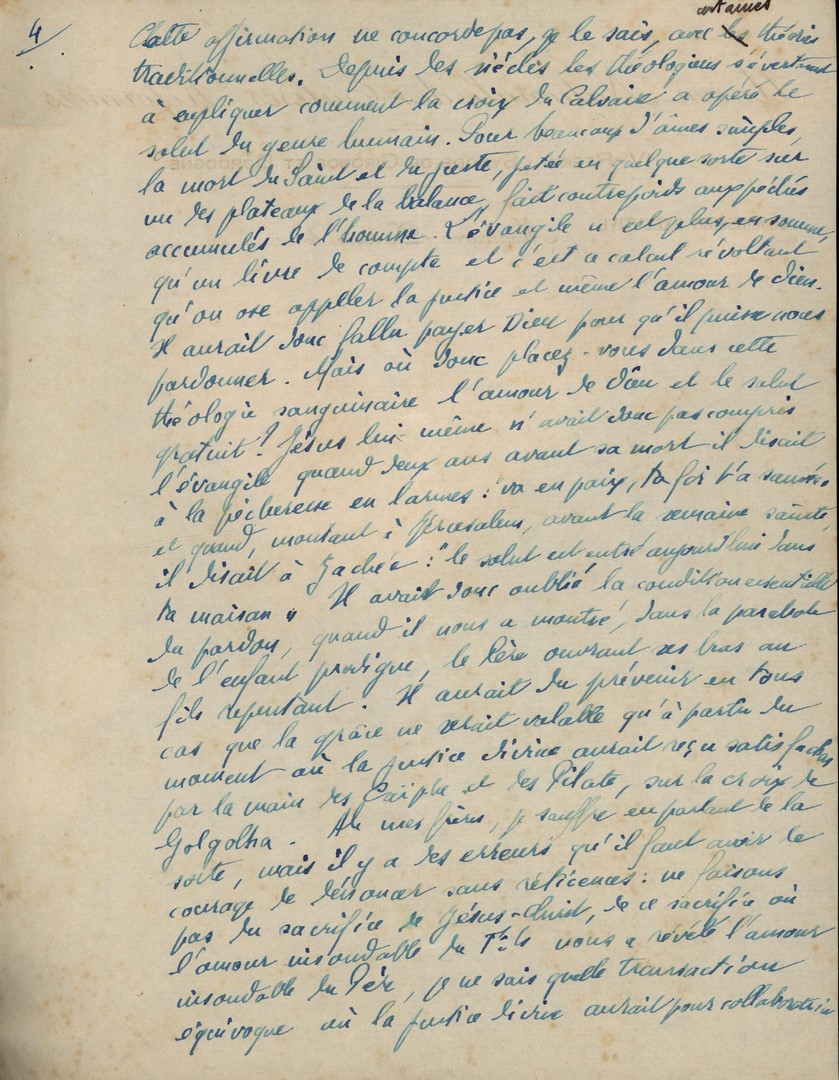 4/
certaines
Cette affirmation ne concorde pas, je le sais, avec les théories
traditionnelles. Depuis des siècles les théologiens s'évertuent
à expliquer comment la croix du Calvaire a opéré le
salut du genre humain. Pour beaucoup d'âmes simples,
la mort du Saint et du Juste, jetée en quelque sorte sur
un des plateaux de la balance, fait contrepoids aux péchés
accumulés de l'homme. L'évangile n'est plus, en somme,
qu'un livre de compte et c'est ce calcul révoltant
qu'on ose appeler la justice et même l'amour de Dieu.
Il aurait donc fallu payer Dieu pour qu'il puisse nous
pardonner. Mais où donc placez-vous dans cette
théologie sanguinaire l'amour de Dieu et le salut
gratuit? Jésus lui-même n'avait donc pas compris
l'évangile quand deux ans avant sa mort il disait
à la pécheresse en larmes: "va en paix, ta foi t'a sauvée"
et quand, montant à Jérusalem, avant la semaine sainte,
il disait à Zachée: "le salut est entré aujourd'hui dans
ta maison" Il avait donc oublié la condition essentielle
du pardon, quand il nous a montré, dans la parabole
de l'enfant prodigue, le Père ouvrant ses bras au
fils repentant. Il aurait du prévenir en tous
cas que la grâce ne serait valable qu'à partir du
moment où la justice divine aurait reçu satisfaction
par la main des Caïphe et des Pilate, sur la croix de
Golgotha. Ah mes frères, je souffre en parlant de la
sorte, mais il y a des erreurs qu'il faut avoir le
courage de dénoncer sans réticences: ne faisons
pas du sacrifice de Jésus-Christ, de ce sacrifice où
l'amour insondable du Fils nous a révélé l'amour
insondable du Père, je ne sais quelle transaction
équivoque où la justice divine aurait pour collaboratrice